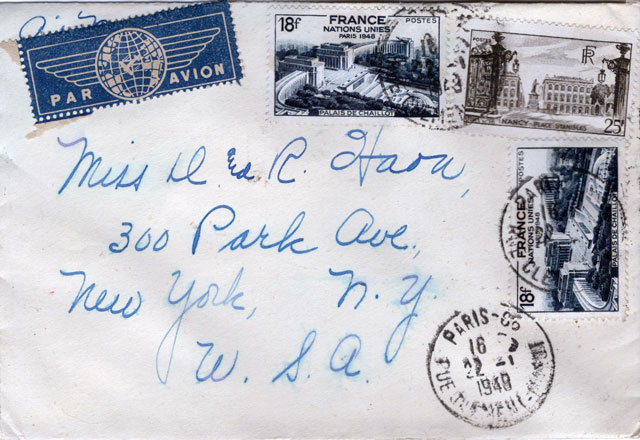 PAR AVION
18f FRANCE POSTES
NATIONS UNIES
PARIS 1948
PALAIS DE CHAILLOT
POSTES RF
25f
18f FRANCE POSTES
NATIONS UNIES
PARIS 1948
PALAIS DE CHAILLOT
Miss D. R. Haon,
300 Park Ave.,
New York, N. Y.
U. S. A.
PARIS
16
1948
RUE